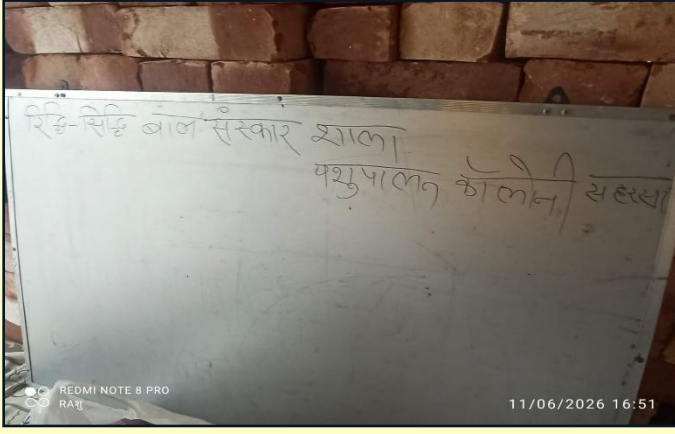 रिद्धि-सिद्धि बाल संस्कार शाला
पशुपालन कॉलोनी सहरसा
REDMI NOTE 8 PRO
11/06/2026 16:51